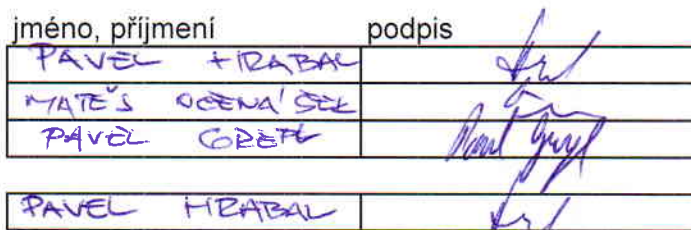 jméno, příjmení podpis
PAVEL HRABAL
MATĚJ OČENÁŠEK
PAVEL GREPL
PAVEL HRABAL